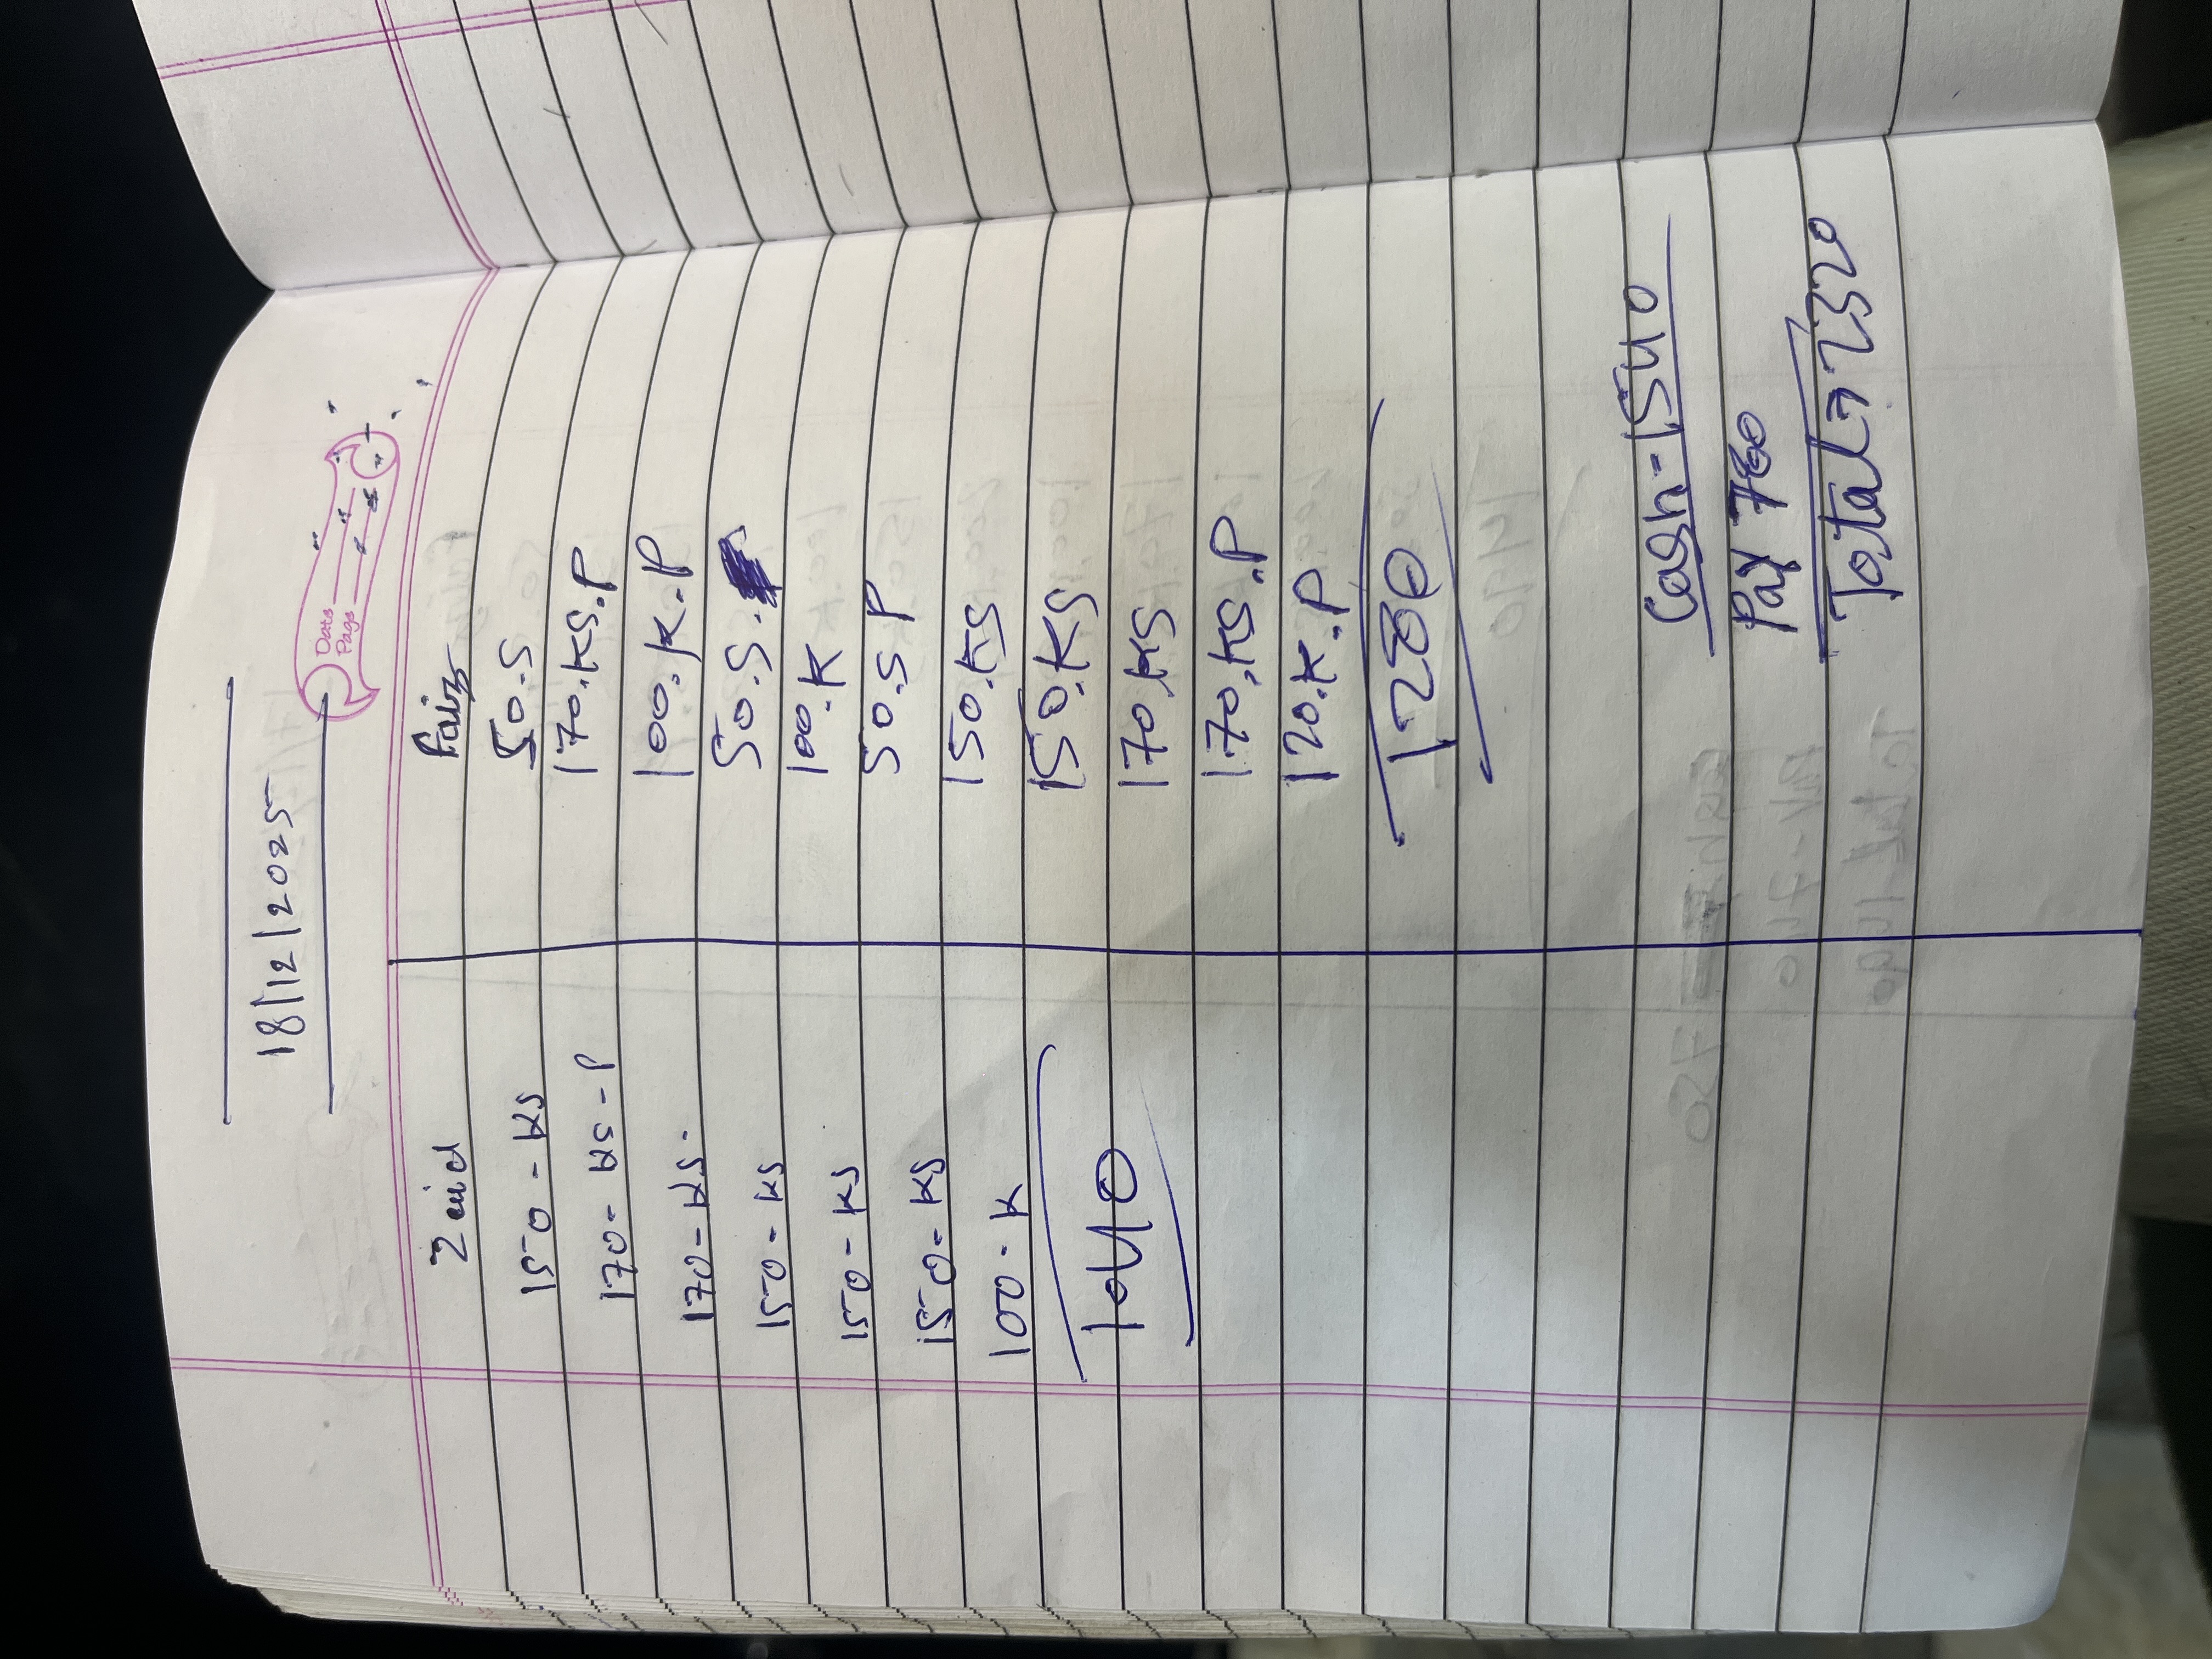 18/12/2025
Date
Page
Zaid
150 - KS
170 - KS - P
170 - KS.
150 - KS
150 - KS
150 - KS
100 - K
1040
Faiz
50.S
170.KS.P
100.K.P
50.S.
100.K
50.S P
150.KS
150.KS
170.KS
170.KS.P
120.K.P
1280
Cash - 1540
Pay 780
Total → 2320